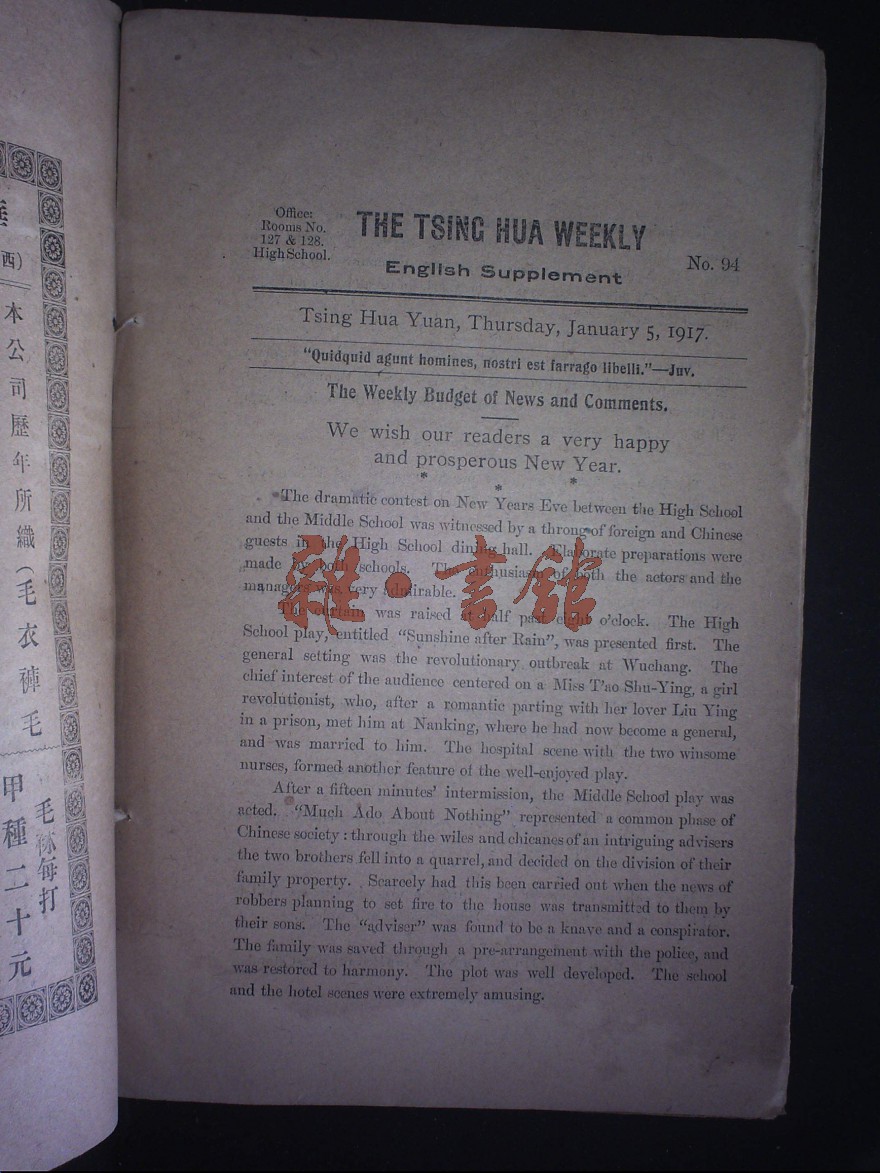 本公司歷年所織(毛衣褲毛
甲種二十元
毛
每打
西)
Office:
Rooms No.
127 & 128.
High School.
THE TSING HUA WEEKLY
English Supplement
No. 94
Tsing Hua Yuan, Thursday, January 5, 1917.
"Quidquid agunt homines, nostri est farrago libelli."—Juv.
The Weekly Budget of News and Comments.
We wish our readers a very happy
and prosperous New Year.
* * *
The dramatic contest on New Years Eve between the High School
and the Middle School was witnessed by a throng of foreign and Chinese
guests in the High School dining hall. Elaborate preparations were
made by both schools. The enthusiasm of both the actors and the
managers was very admirable.
The curtain was raised at half past eight o'clock. The High
School play, entitled "Sunshine after Rain", was presented first. The
general setting was the revolutionary outbreak at Wuchang. The
chief interest of the audience centered on a Miss T'ao Shu-Ying, a girl
revolutionist, who, after a romantic parting with her lover Liu Ying
in a prison, met him at Nanking, where he had now become a general,
and was married to him. The hospital scene with the two winsome
nurses, formed another feature of the well-enjoyed play.
After a fifteen minutes' intermission, the Middle School play was
acted. "Much Ado About Nothing" represented a common phase of
Chinese society: through the wiles and chicanes of an intriguing advisers
the two brothers fell into a quarrel, and decided on the division of their
family property. Scarcely had this been carried out when the news of
robbers planning to set fire to the house was transmitted to them by
their sons. The "adviser" was found to be a knave and a conspirator.
The family was saved through a pre-arrangement with the police, and
was restored to harmony. The plot was well developed. The school
and the hotel scenes were extremely amusing.
雜·書館